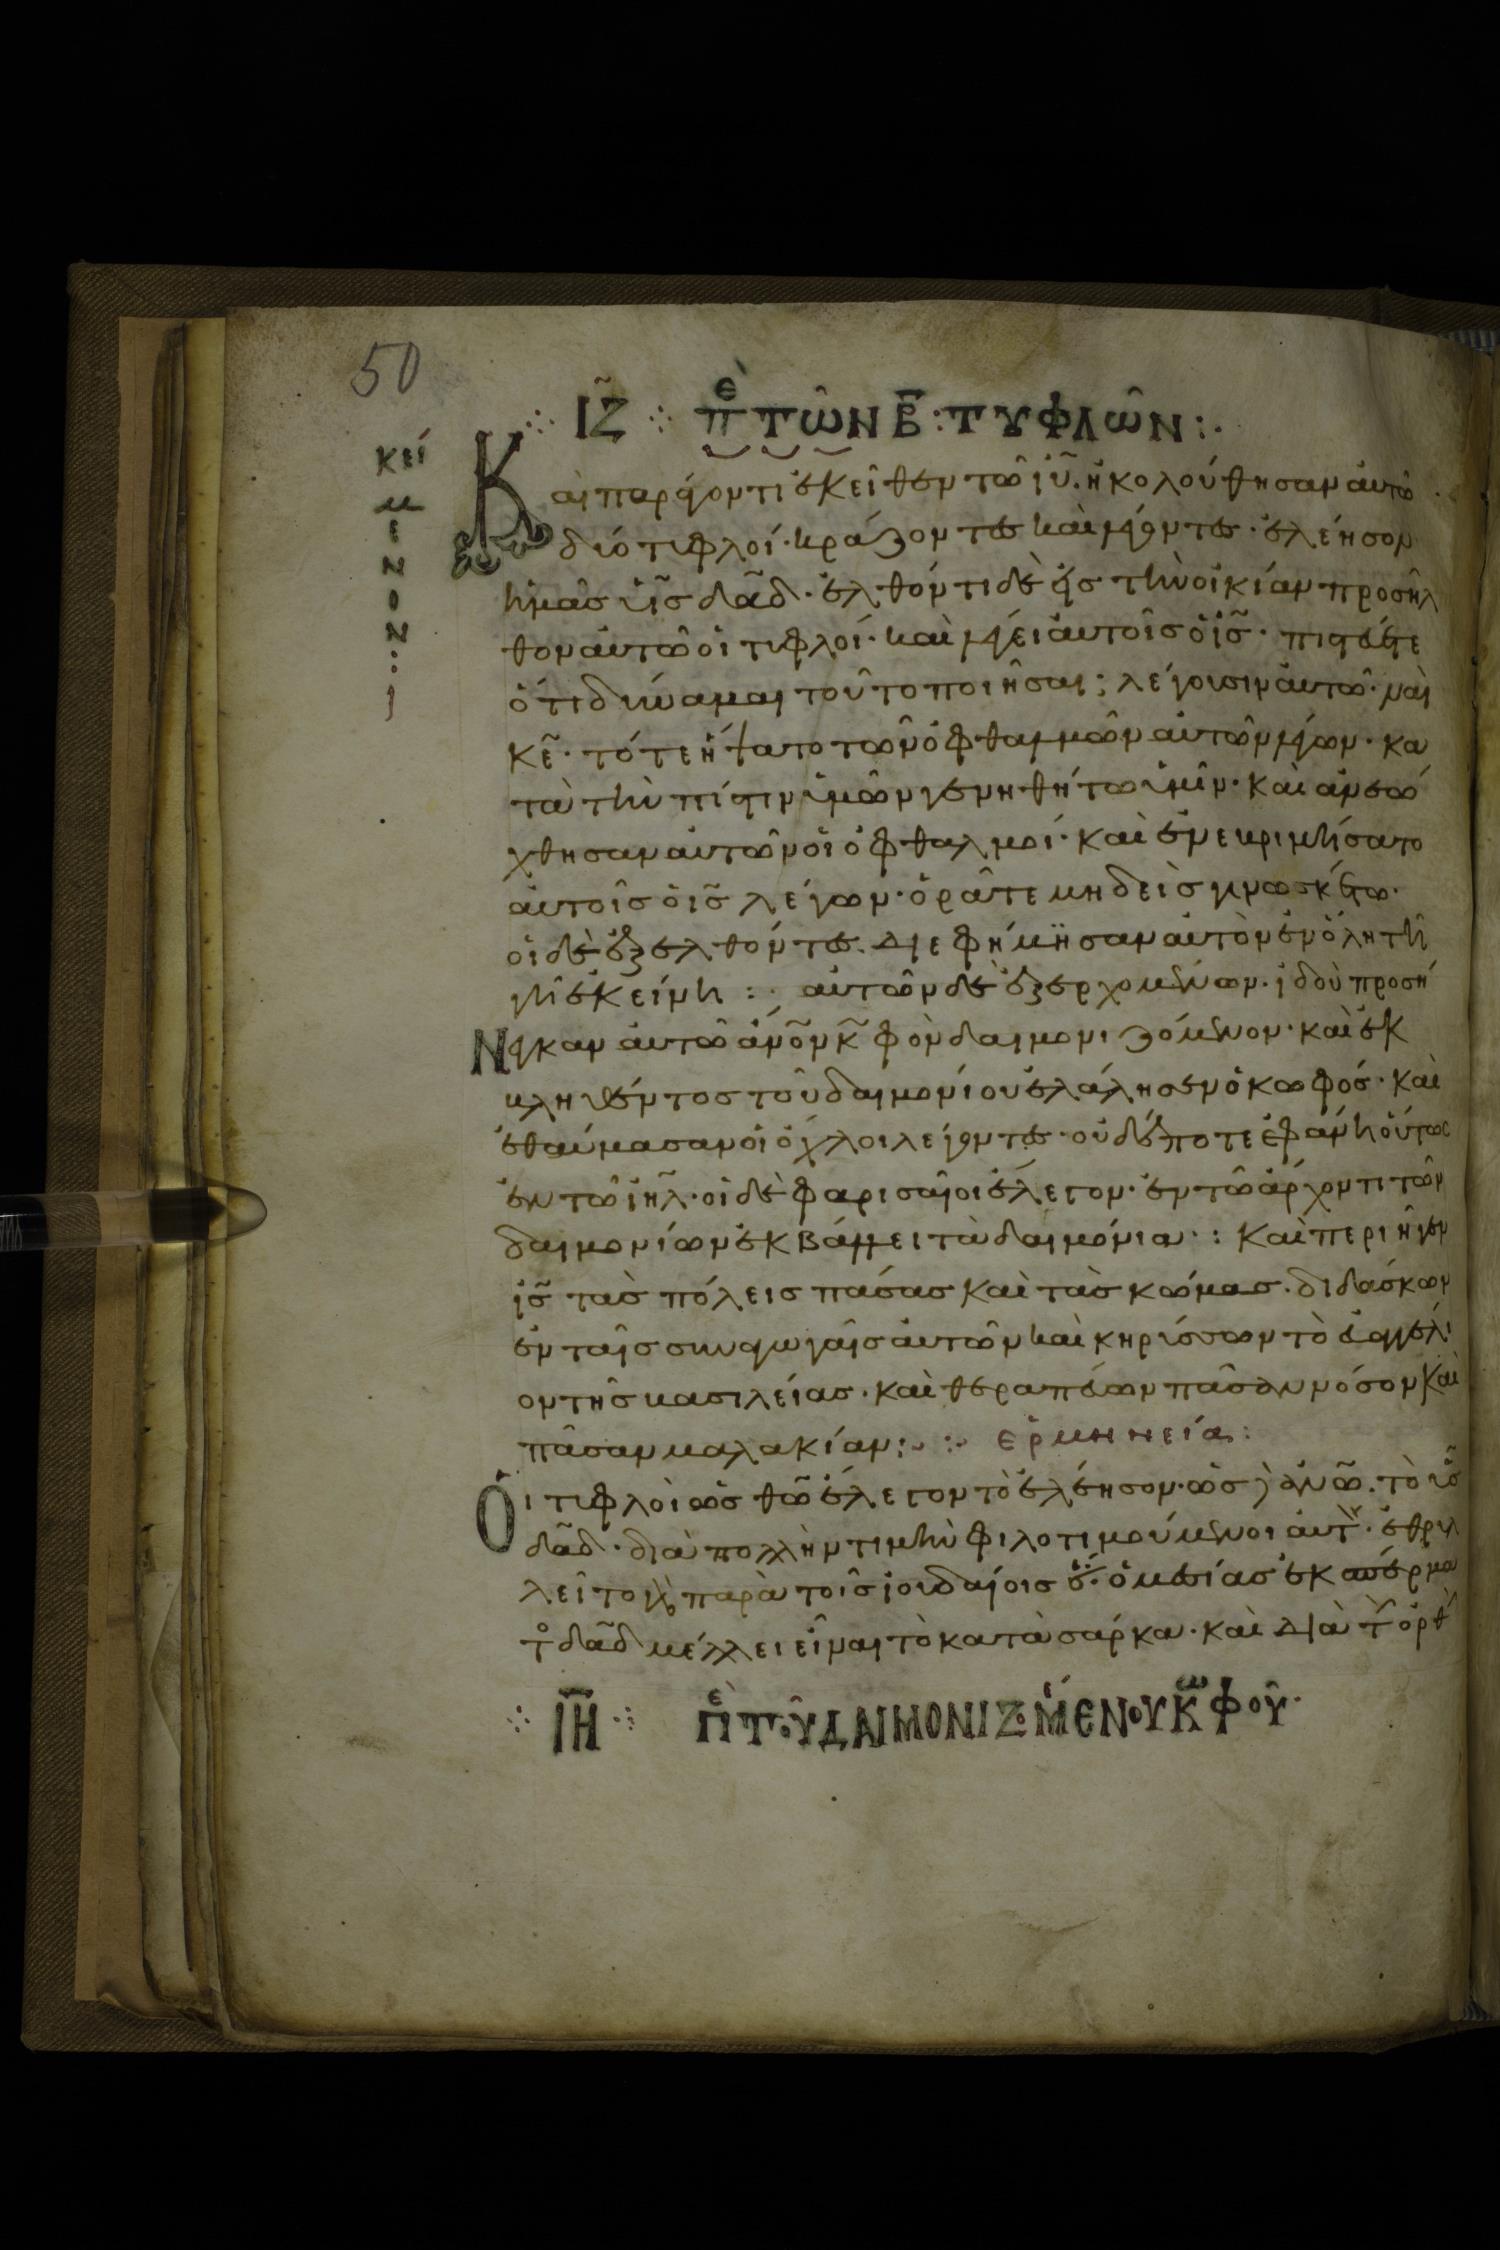 50
ΙΖ̃ πὲ τῶν β̅ τυφλῶν:
κείμενον:
Και παράγοντι ἐκεῖθεν τῶ ἰυ̃. ἠκολούθησαν ἀυτῶ
δύο τυφλοί· κράζοντες καὶ λέγοντες· ἐλέησον
ἡμᾶς υἱς̃ δαδ̃· ἐλθόντι δὲ εἰς τὴν οἰκίαν προσῆλ
θον ἀυτῶ οἱ τυφλοί· καὶ λέγει ἀυτοῖς ὁ ις̃· πιστεύετε
ὅτι δύναμαι τοῦτο ποιῆσαι; λέγουσιν ἀυτῶ· ναὶ
κε̃· τότε ἥψατο τῶν ὀφθαλμῶν αὐτῶν λέγων· κα
τὰ τὴν πίστιν ὑμῶν γενηθήτω ὑμῖν· καὶ ἀνεώ
χθησαν ἀυτῶν οἱ ὀφθαλμοί· καὶ ἐνεβριμήσατο
ἀυτοῖς ὁ ις̃ λέγων· ὁρᾶτε μηδεὶς γινωσκέτω·
οἱ δὲ ἐξελθόντες διεφήμησαν ἀυτὸν ἐν ὅλη τῆ
γῆ ἐκείνη :· αὐτῶν δὲ ἐξερχομένων· ἰδοὺ προσή
Νεγκαν ἀυτῶ ἀν̃ον κ̃φὸν δαιμονιζόμενον· καὶ ἐκ
βληθέντος τοῦ δαιμονίου ἐλάλησεν ὁ κωφός· καὶ
ἐθαύμασαν οἱ ὄχλοι λέγοντες· οὐδέποτε ἐφάνη οὕτως
ἐν τῶ ἰηλ̃· οἱ δὲ φαρισαῖοι ἔλεγον· ἐν τῶ ἄρχοντι τῶν
δαιμονίων ἐκβάλλει τὰ δαιμόνια· : Καὶ περιῆγεν
ις̃ τὰς πόλεις πάσας καὶ τὰς κώμας· διδάσκων
ἐν ταῖς συναγωγαῖς ἀυτῶν καὶ κηρύσσων τὸ ἐυαγγέλι
ον τῆς βασιλείας· καὶ θεραπεύων πᾶσαν νόσον καὶ
πᾶσαν μαλακίαν :· :· ἑρμηνεία:
Οἱ τυφλοὶ ὡς θῶ̃ ἔλεγον τὸ ἐλέησον· ὡς ἀνω̃· τὸ υἱς̃
δαδ̃· διὰ πολλὴν τιμὴν φιλοτιμούμενοι ἀυτ· ἐθρυλ
λεῖτο γὰρ παρὰ τοῖς ἰουδαίοις ὁ μεσίας ἐκ σπέρμα
τ δαδ̃ μέλλει εἶναι τὸ κατὰ σάρκα· καὶ διὰ τ ὀρθ
ΙΗ̅ πὲ τοῦ δαιμονιζομένου κωφοῦ·